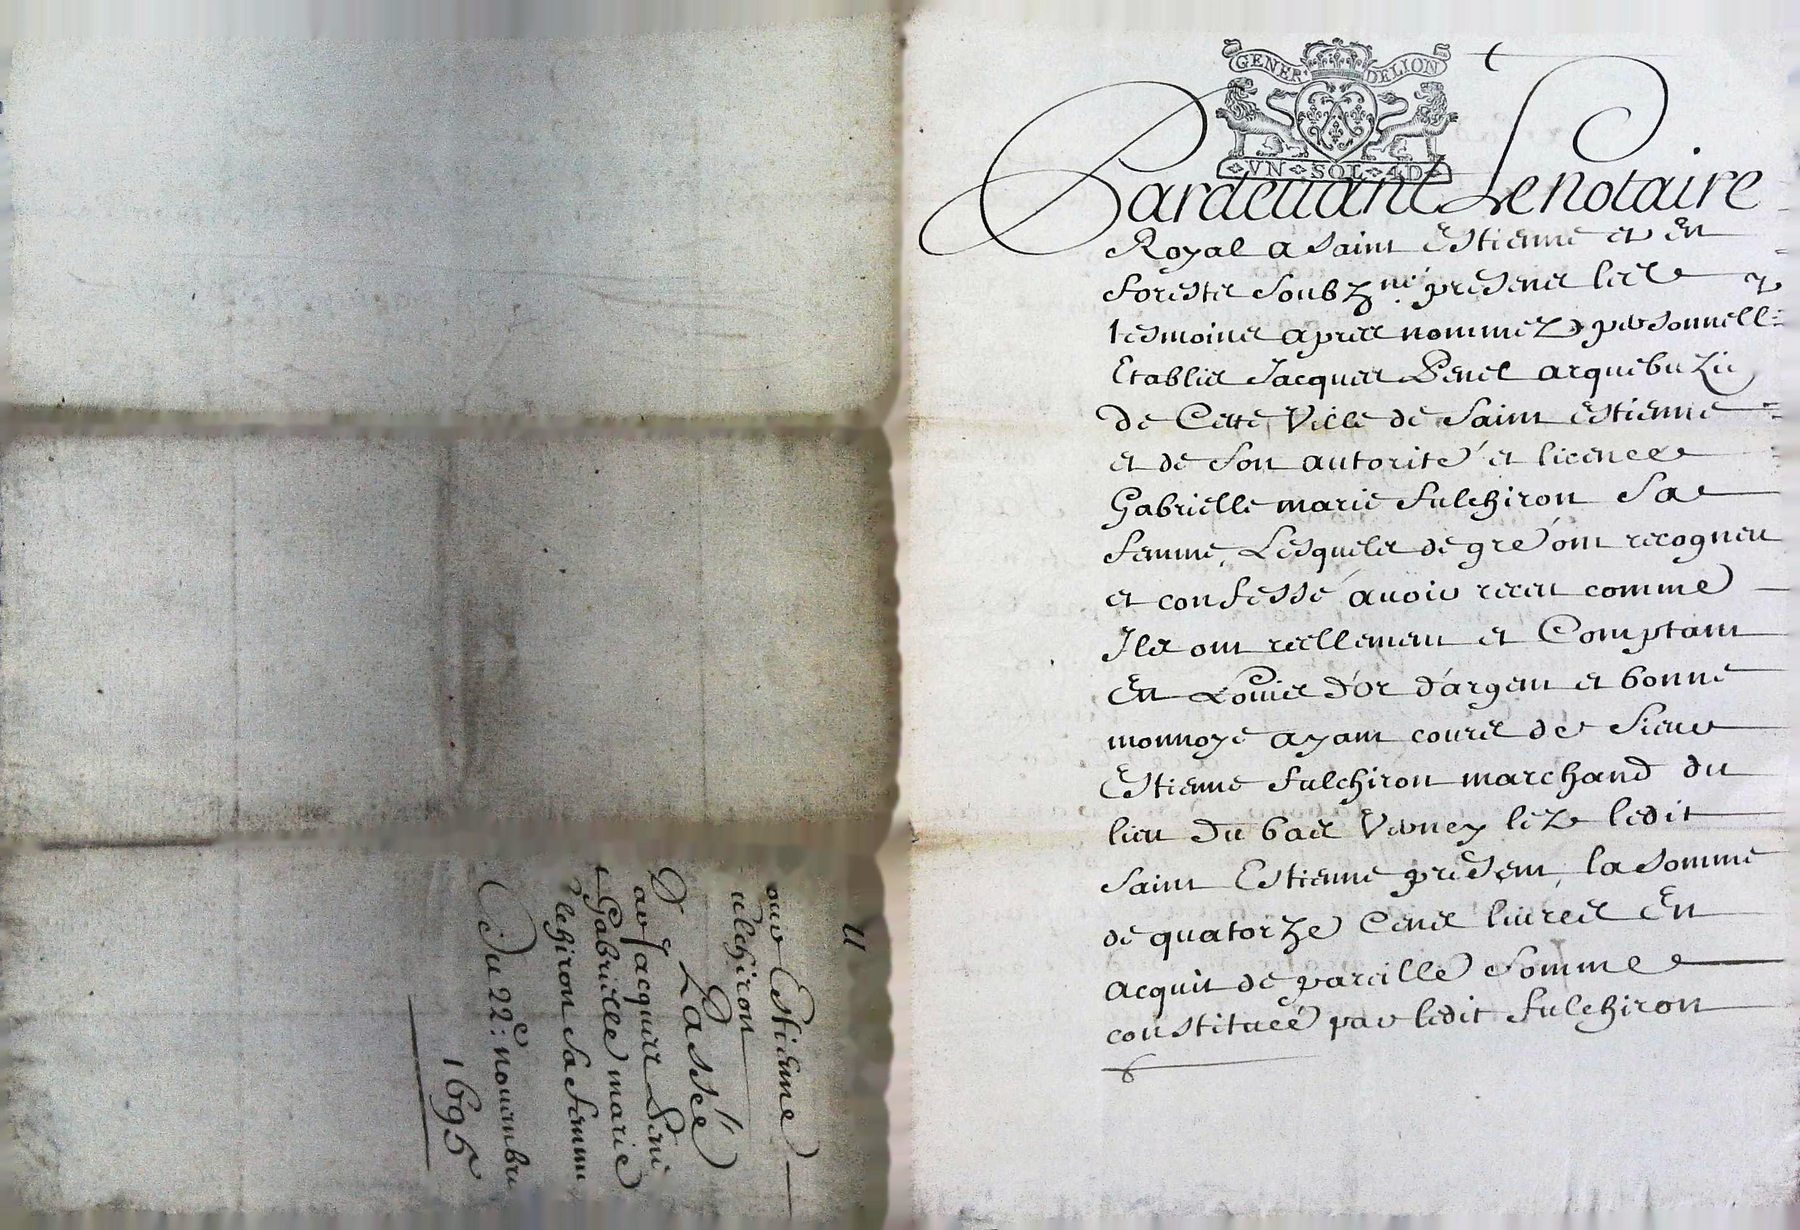 GENER DELION
VN SOL 4D
Pardeuant Le notaire
Royal a Saint Estienne et en
forestz soubz.né presenes les
tesmoines apres nommez personnell:
Etablies Jacques arquebuzie
de Cette Ville de Saint Estienne
et de son autorité et licence
Gabrielle marie fulchiron sa
femme, Lesqueles de gré ont recogneu
et confessé auoir receu comme
Iles ont reellement et Comptant
En Louies d'or d'argent et bonne
monnoye ayant coures de sieur
Estienne fulchiron marchand du
lieu du bas Vernay lez ledit
saint Estienne present, la somme
de quatorze Cents liures En
acquit de pareille somme
constituée par ledit fulchiron
our Estienne
ulchiron
Passée
par Jacques
Gabrielle marie
lchiron sa femme
Du 22e: nouembre
1695